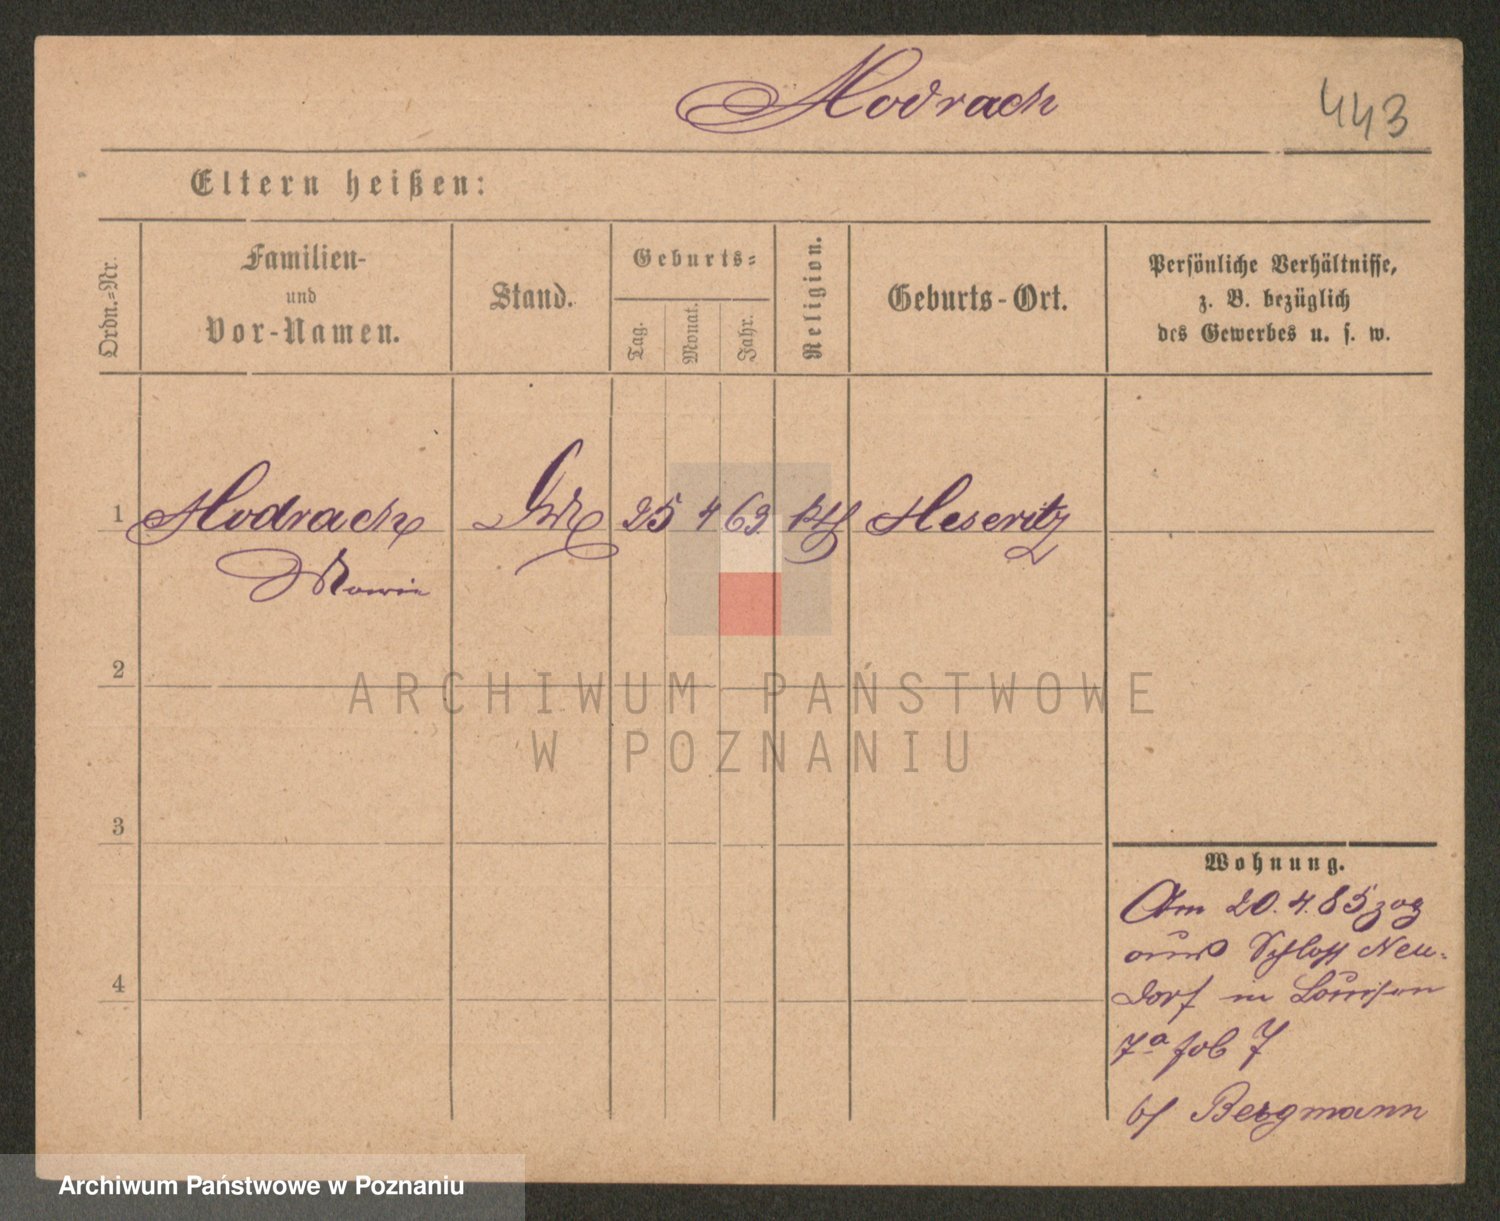 Modrach
443
Eltern heißen:
Ordn.=Nr.
Familien-
und
Vor-Namen.
Stand.
Geburts=
Tag.
Monat.
Jahr.
Religion.
Geburts-Ort.
Persönliche Verhältnisse,
z. B. bezüglich
des Gewerbes u. s. w.
1 Modrach 25 4 63 kth Meseritz
Marie
2
3
4
ARCHIWUM PAŃSTWOWE
W POZNANIU
Wohnung.
Am 20.4.85 zog
aus Schloss Neu-
dorf in Louisen
7a
b/ Bergmann
Archiwum Państwowe w Poznaniu